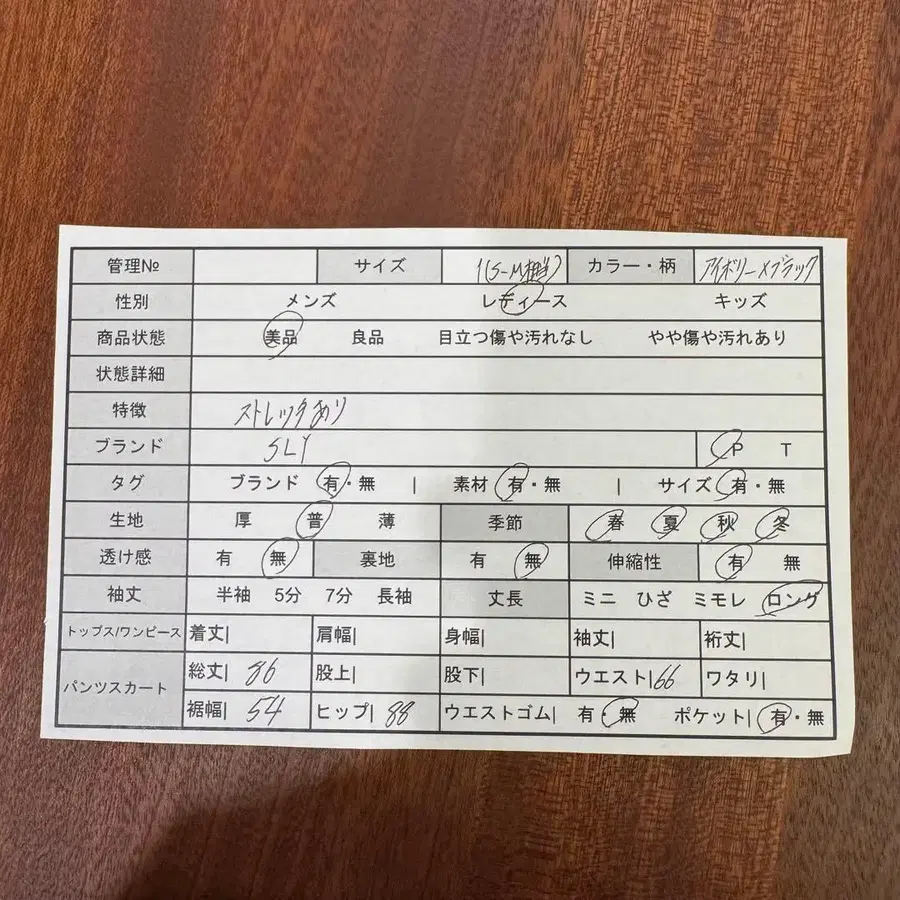 管理№ サイズ 1(S-M相当) カラー・柄 アイボリー×ブラック
性別 メンズ レディース キッズ
商品状態 美品 良品 目立つ傷や汚れなし やや傷や汚れあり
状態詳細
特徴 ストレッチあり
ブランド SLY P T
タグ ブランド 有・無 | 素材 有・無 | サイズ 有・無
生地 厚 普 薄 季節 春 夏 秋 冬
透け感 有 無 裏地 有 無 伸縮性 有 無
袖丈 半袖 5分 7分 長袖 丈長 ミニ ひざ ミモレ ロング
トップス/ワンピース 着丈| 肩幅| 身幅| 袖丈| 裄丈|
パンツスカート 総丈| 86 股上| 股下| ウエスト| 66 ワタリ|
裾幅| 54 ヒップ| 88 ウエストゴム| 有・無 ポケット| 有・無